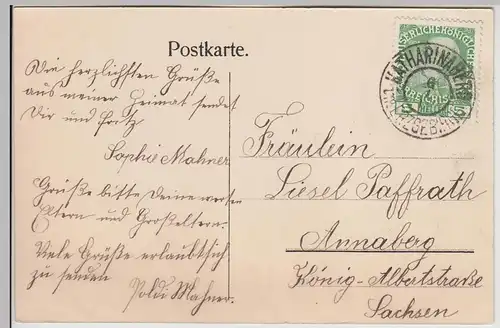 Postkarte.
Die herzlichsten Grüße
aus meiner Heimat sendet
Dir und Fritz
Sophie Mahner
Grüße bitte Deine werten
Eltern und Großeltern.
Viele Grüße erlaubt sich
zu senden
Poldi Mahner.
Fräulein
Liesel Paffrath
Annaberg
König-Albertstraße
Sachsen
KATHARINABERG
ERZGEBIRGE